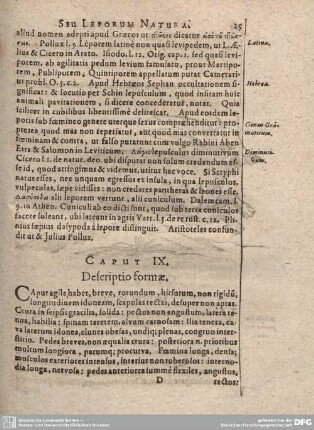 SEU LEPORUM NATURA.
25
aliud nomen adepti apud Græcos ut
dicatur
Pollux l. 5. Leporem latinè non quasi levipedem, ut L. Æ-
lius & Cicero in Arato. Isiodo. l. 12. Orig. cap. 1. sed quasi levi-
Latinæ.
porem, ab agilitatis pedum levium famulatu, prout Martipo-
rem, Publiporem, Quintiporem appellatum putat Camerari-
us probl. O. 5. c. 2. Apud Hebræos Sephan occultationem si-
Hebreæ.
gnificat: & fortassis per Schin lepusculum, quod insitam huic
animali pavitationem, si dicere concederetur, notat. Quia
scilicet in cubilibus libentissimè delitescat. Apud eosdem le-
poris sub fœminino genere uterque sexus comprehenditur: pro-
pterea quod mas non reperiatur, aut quod mas convertatur in
fœminam & contra, ut falso putarunt cum vulgo Rabini Aben
Ezra & Salomon in Leviticum.
lepusculus diminutivum
Ciceroni l. 1. de natur. deo. ubi disputat non solum credendum es-
se id, quod attingimus & videmus, utitur hac voce. Si Scryphi
natus esses, nec unquam egressus ex insula, in qua lepusculos,
vulpeculas, sæpe vidisses: non crederes pantheras & leones esse.
alii leporem vertunt, alii cuniculum. Dalecamp. l.
9. in Athen. Cuniculi ab eo dicti sunt, quod sub terra cuniculos
facere soleant, ubi lateant in agris Varr. l. 3. de re rust. c. 12. Pli-
nius sæpius dasypoda à lepore distinguit. Aristoteles confun-
dit ut & Julius Pollux.
CAPUT IX.
Descriptio formæ.
Caput agile habet, breve, rotundum, hirsutum, non rigidū,
longitudinem idoneam, scapulas rectas, desuper non aptas.
Crura in se ipsis gracilia, solida: pectus non angustum, latera te-
nua, habilia; spinam teretem, alvum carnosam: ilia tenera, ca-
va laterum idonea, clunes obesas, undiq; plenas, cruribusq; ordine
respondentes. Pedes breves, non æqualia crura: posteriora n. prioribus
multum longiora, parumq; procurva. Fœmina longa, densa;
musculos exteriores intensos, interius non robustos: interno-
dia longa, nervosa: pedes anteriores summè flexiles, angustos,
D
rectos: